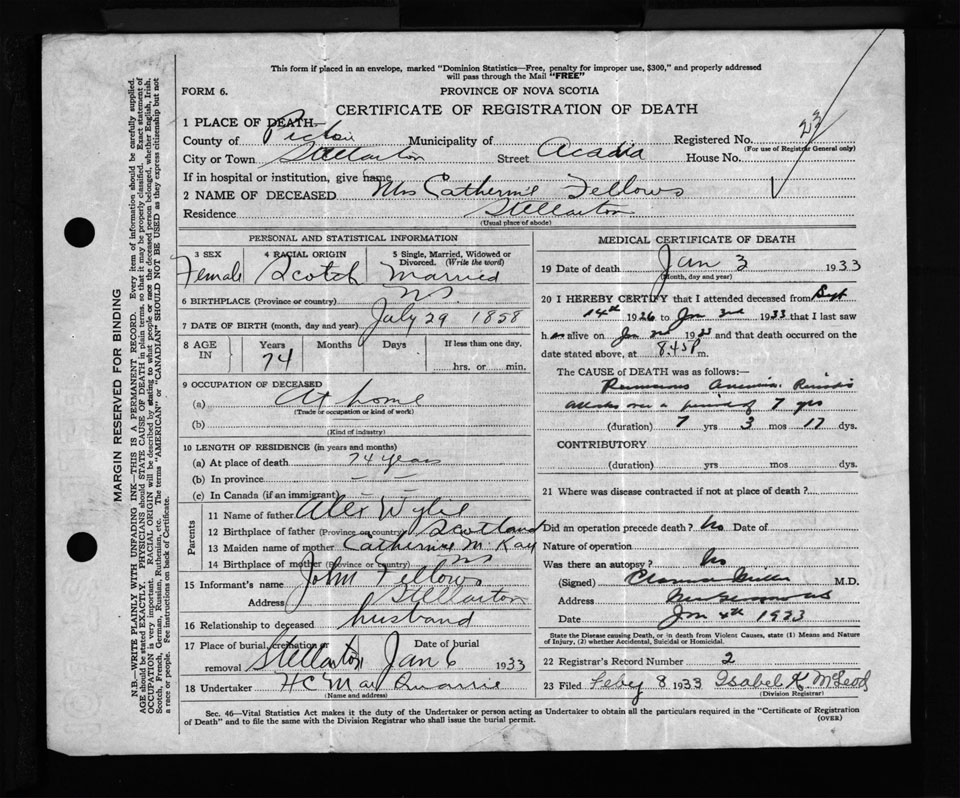 This form if placed in an envelope, marked "Dominion Statistics—Free, penalty for improper use, $300," and properly addressed
will pass through the Mail "FREE"
FORM 6.
PROVINCE OF NOVA SCOTIA
CERTIFICATE OF REGISTRATION OF DEATH
1 PLACE OF DEATH
County of Pictou Municipality of Registered No. 23
(For use of Registrar General only)
City or Town Stellarton Street Acadia House No.
If in hospital or institution, give name
2 NAME OF DECEASED Mrs Catherine Fellows
Residence Stellarton
(Usual place of abode)
PERSONAL AND STATISTICAL INFORMATION
3 SEX 4 RACIAL ORIGIN 5 Single, Married, Widowed or
Divorced. (Write the word)
Female Scotch Married
6 BIRTHPLACE (Province or country) NS.
7 DATE OF BIRTH (month, day and year) July 29 1858
8 AGE IN Years Months Days If less than one day.
74 hrs. or min.
9 OCCUPATION OF DECEASED
(a) At home
(Trade or occupation or kind of work)
(b)
(Kind of industry)
10 LENGTH OF RESIDENCE (in years and months)
(a) At place of death 74 years
(b) In province
(c) In Canada (if an immigrant)
Parents
11 Name of father Alex Wylie
12 Birthplace of father (Province or country) Scotland
13 Maiden name of mother Catherine McKay
14 Birthplace of mother (Province or Country) NS
15 Informant's name John Fellows
Address Stellarton
16 Relationship to deceased husband
17 Place of burial, cremation or Date of burial
removal Stellarton Jan 6 1933
18 Undertaker H C Mac Quarrie
(Name and address)
MEDICAL CERTIFICATE OF DEATH
19 Date of death Jan 3 1933
(Month, day and year)
20 I HEREBY CERTIFY that I attended deceased from Sept
14th 1926 to Jan 2nd 1933 that I last saw
her alive on Jan 2nd 1933 and that death occurred on the
date stated above, at 8.45 P m.
The CAUSE OF DEATH was as follows:—
Pernicious Anaemia. Periodic
attacks over a period of 7 yrs
(duration) 7 yrs 3 mos 17 dys.
CONTRIBUTORY
(duration) yrs mos dys.
21 Where was disease contracted if not at place of death?
Did an operation precede death? No Date of
Nature of operation
Was there an autopsy? No
(Signed) Clarence Miller M.D.
Address New Glasgow NS
Date Jan 4th 1933
State the Disease causing Death, or in death from Violent Causes, state (1) Means and Nature
of Injury, (2) whether Accidental, Suicidal or Homicidal.
22 Registrar's Record Number 2
23 Filed Feby 8 1933 Isabel K. McLeod
(Division Registrar)
Sec. 46—Vital Statistics Act makes it the duty of the Undertaker or person acting as Undertaker to obtain all the particulars required in the "Certificate of Registration
of Death" and to file the same with the Division Registrar who shall issue the burial permit.
(OVER)
MARGIN RESERVED FOR BINDING
N.B.—WRITE PLAINLY WITH UNFADING INK—THIS IS A PERMANENT RECORD. Every item of information should be carefully supplied.
AGE should be stated EXACTLY. PHYSICIANS should STATE CAUSE OF DEATH in plain terms, so that it may be properly classified. Exact statement of
OCCUPATION is very important. RACIAL ORIGIN will be described by stating to what people or race the deceased person belonged, whether English, Irish,
Scotch, French, German, Russian, Ruthenian, etc. The terms "AMERICAN" or "CANADIAN" SHOULD NOT BE USED as they express citizenship but not
a race or people. See instructions on back of Certificate.